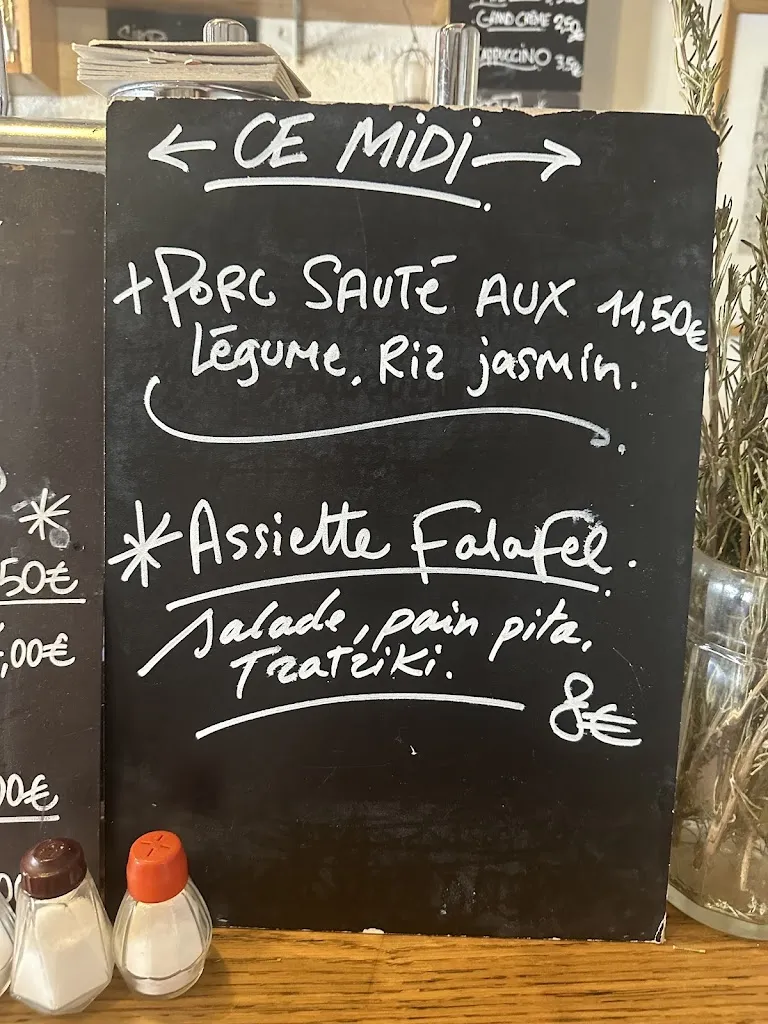 GRAND CRÈME 2,50€
CAPPUCCINO 3,50€
← CE MIDI →
+ PORC SAUTÉ AUX 11,50€
LÉGUME. RIZ jasmin.
* Assiette Falafel.
salade, pain pita.
Tzatziki.
8€
*
50€
,00€
00€